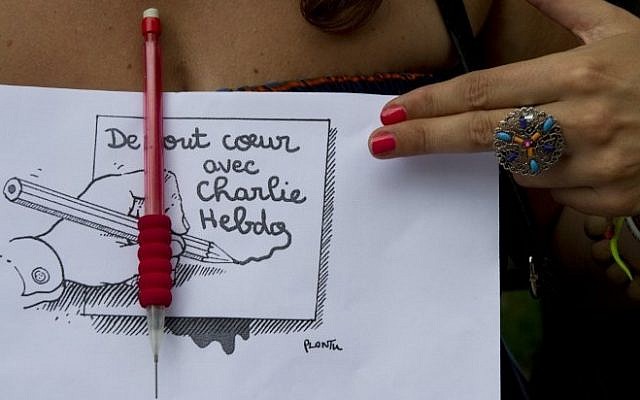 De tout cœur
avec
Charlie
Hebdo
PLANTU